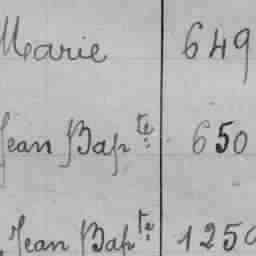 Marie 649
Jean Bap.te 650
Jean Bap.te 1250